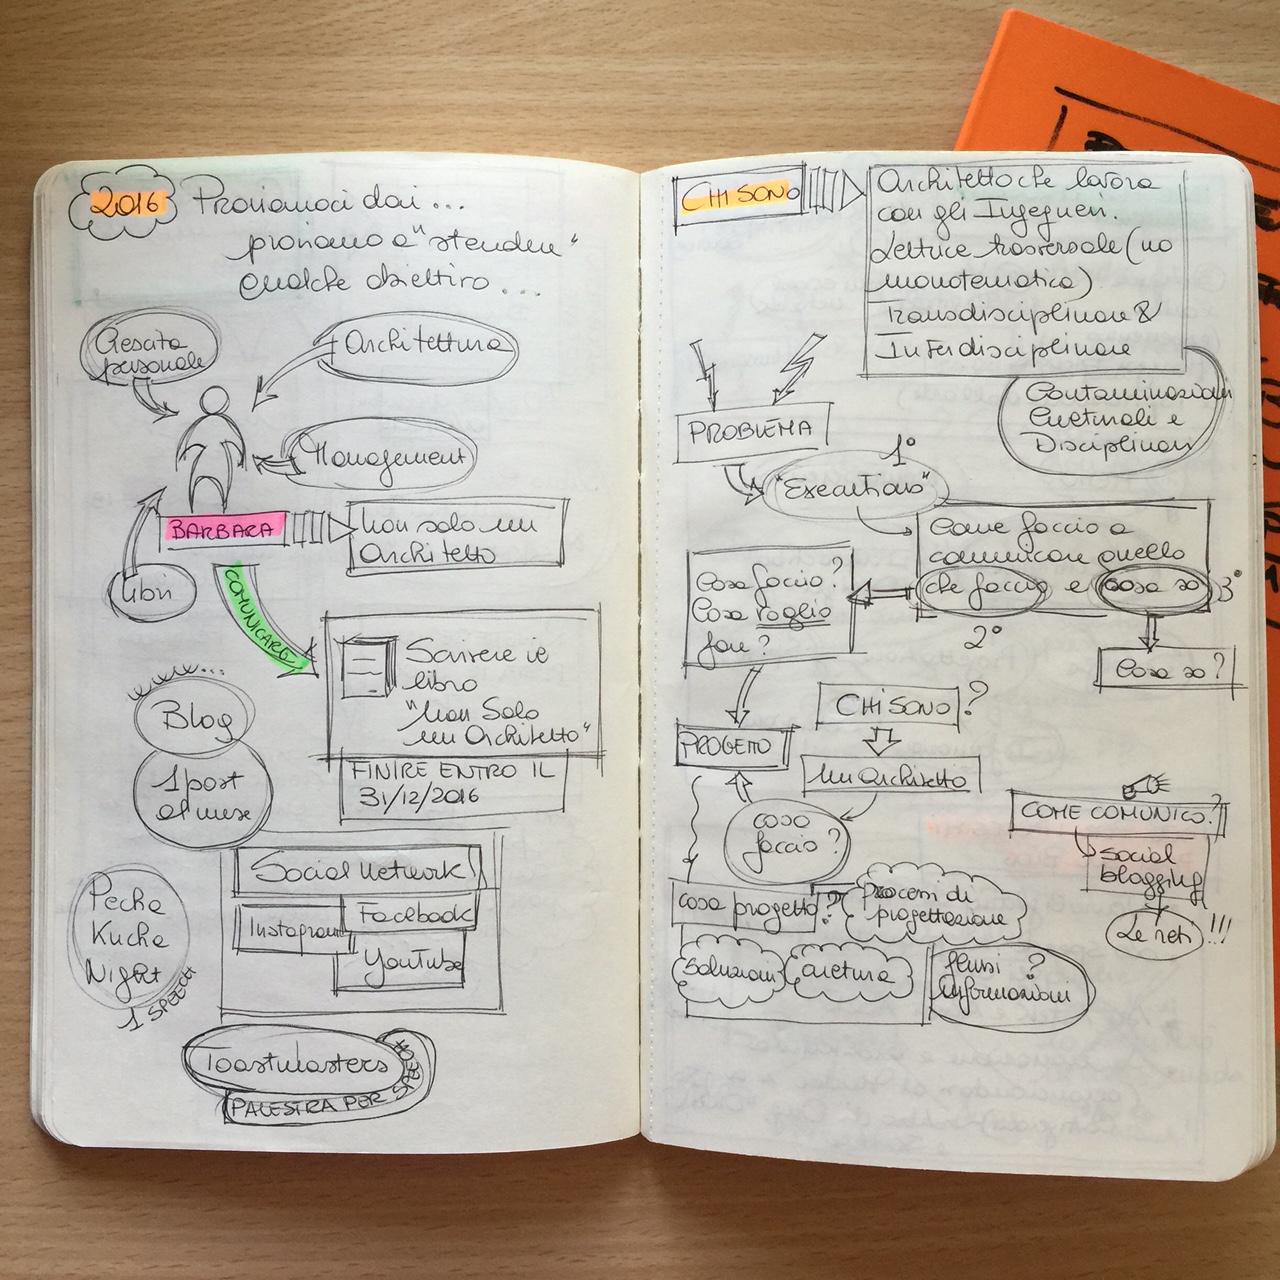 2016 Proviamoci dai ...
proviamo a "stendere"
qualche obiettivo ...
Crescita
personale
Architettura
Management
BARBARA
Non solo un
Architetto
Libri
COMUNICARE
Scrivere il
libro
"Non Solo
un Architetto"
FINIRE ENTRO IL
31/12/2016
Blog
1 post
al mese
Social Network
Facebook
Instagram
YouTube
Pecha
Kucha
Night
1 SPEECH
Toastmasters
PALESTRA PER SPEECH
CHI SONO
Architetto che lavora
con gli Ingegneri.
Letture trasversale (no
monotematica)
Transdisciplinare &
Interdisciplinare
Contaminazioni
Culturali e
Disciplinari
PROBLEMA
1°
Come faccio a
comunicare quello
che faccio e cosa so 3°
2°
Cosa faccio?
Cosa voglio
fare?
Cosa so?
CHI SONO?
PROGETTO
Un architetto
cosa
faccio?
COME COMUNICO?
social
blogging
Le reti !!!
cosa progetto?
Processi di
progettazione
soluzioni
cultura
flussi ?
informazioni